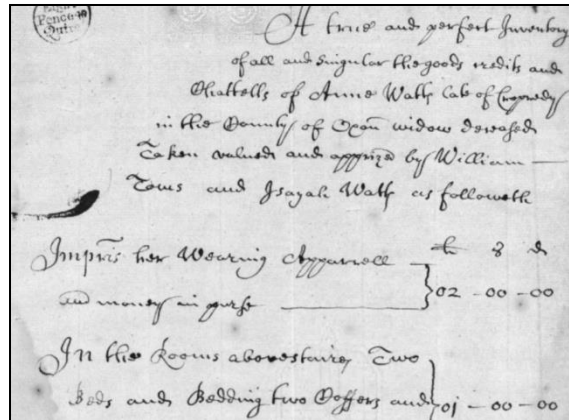 Pence 40
A true and perfect Inventory
of all and singular the goods credits and
Chattells of Anne Watts late of Cropredy
in the County of Oxon widow deceased
Taken valued and apprized by William
Toms and Isayah Watts as followeth
li s d
Impris her Wearing Apparrell
and money in purse 02 - 00 - 00
In the Rooms abovestaires Two
Beds and Bedding two Coffers and 01 - 00 - 00